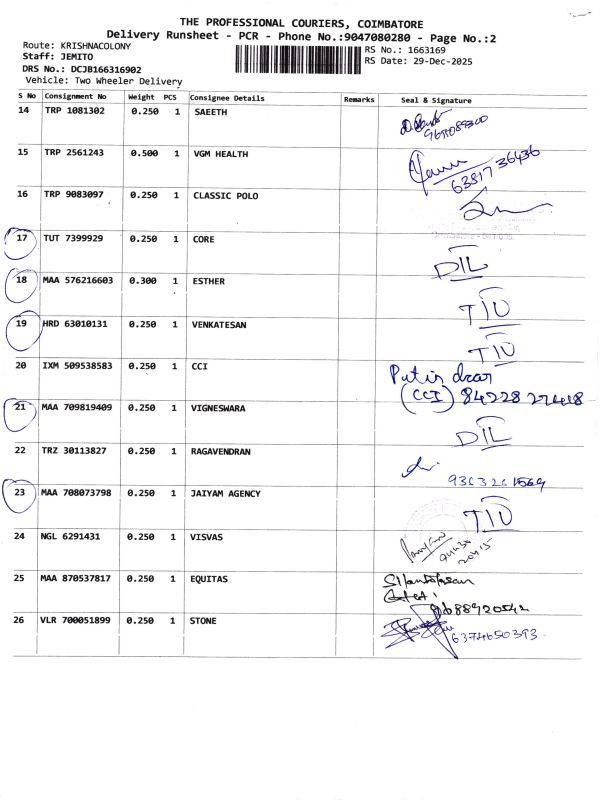 THE PROFESSIONAL COURIERS, COIMBATORE
Delivery Runsheet - PCR - Phone No.:9047080280 - Page No.:2
Route: KRISHNACOLONY
Staff: JEMITO
DRS No.: DCJB166316902
Vehicle: Two Wheeler Delivery
RS No.: 1663169
RS Date: 29-Dec-2025
S No Consignment No Weight PCS Consignee Details Remarks Seal & Signature
14 TRP 1081302 0.250 1 SAEETH
15 TRP 2561243 0.500 1 VGM HEALTH 63817 36436
16 TRP 9083097 0.250 1 CLASSIC POLO
17 TUT 7399929 0.250 1 CORE DIL
18 MAA 576216603 0.300 1 ESTHER TIU
19 HRD 63010131 0.250 1 VENKATESAN TIU
20 IXM 509538583 0.250 1 CCI
(CCI) 84228 27418
21 MAA 709819409 0.250 1 VIGNESWARA DIL
22 TRZ 30113827 0.250 1 RAGAVENDRAN
23 MAA 708073798 0.250 1 JAIYAM AGENCY TIU
24 NGL 6291431 0.250 1 VISVAS
25 MAA 870537817 0.250 1 EQUITAS
26 VLR 700051899 0.250 1 STONE 6374650393